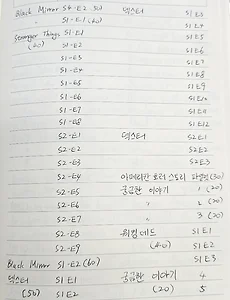 Black Mirror S4-E2 (50)
" S1-E1 (60)
Stranger Things S1-E1
(50) S1-E2
S1-E3
S1-E4
S1-E5
S1-E6
S1-E7
S1-E8
S2-E1
S2-E2
S2-E3
S2-E4
S2-E5
S2-E6
S2-E7
S2-E8
S2-E9
Black Mirror S1-E2 (60)
덱스터 S1 E1
(50) S1 E2
덱스터 S1 E3
S1 E4
S1 E5
S1 E6
S1 E7
S1 E8
S1 E9
S1 E10
S1 E11
S1 E12
덱스터 S2 E1
S2 E2
S2 E3
아메리칸 호러 스토리 (30)
궁금한 이야기 1 (20)
" 2 (20)
" 3 (20)
워킹 데드 S1 E1
(40) S1 E2
S1 E3
궁금한 이야기 4
(20) 5